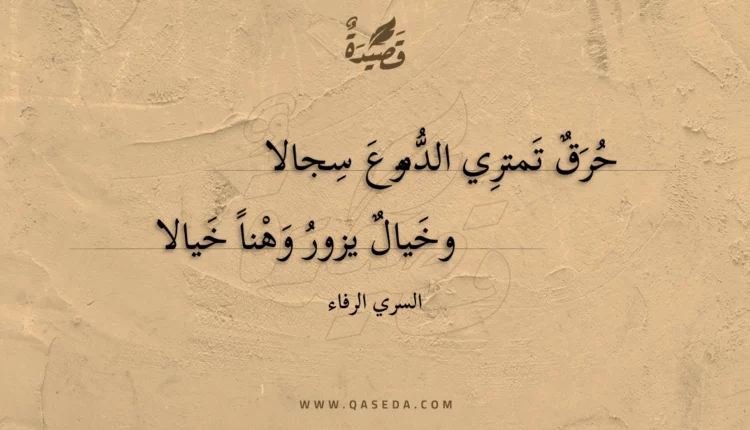 قَصِيدَةٌ
حُرَقٌ تَمترِي الدُّموعَ سِجالا
وخَيالٌ يزورُ وَهْناً خَيالا
السري الرفاء
WWW.QASEDA.COM